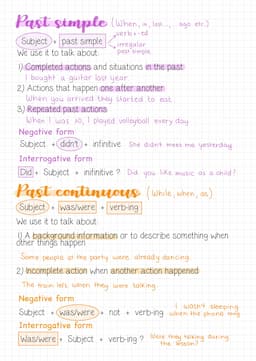 Past simple (When, in, last..., ago etc.)
Subject + past simple verb+-ed
irregular past simple
We use it to talk about
1) Completed actions and situations in the past
I bought a guitar last year
2) Actions that happen one after another
When you arrived they started to eat
3) Repeated past actions
When I was 10, I played volleyball every day
Negative form
Subject + didn't + infinitive She didn't meet me yesterday
Interrogative form
Did + Subject + infinitive ? Did you like music as a child?
Past continuous (While, when, as)
Subject + was/were + verb-ing
We use it to talk about
1) A background information or to describe something when
other things happen
Some people at the party were already dancing
2) Incomplete action when another action happened
The train left when they were talking
Negative form
Subject + was/were + not + verb-ing I wasn't sleeping
when the phone rang
Interrogative form
Was/were + Subject + verb-ing ? Were they talking during
the lesson?